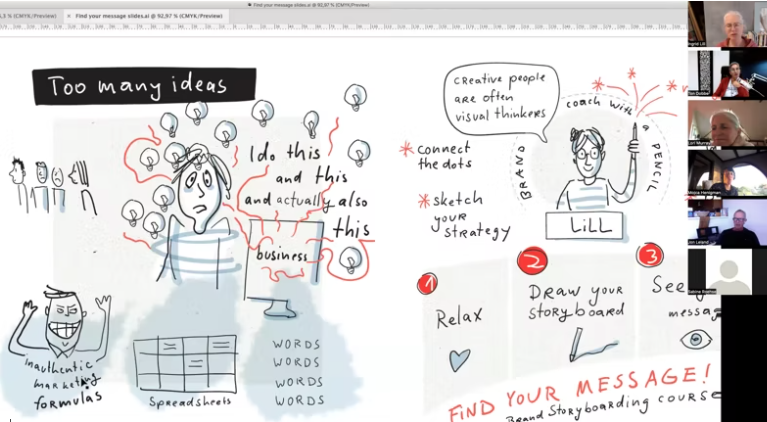 Find your message slides.ai @ 92,97 % (CMYK/Preview)
% (CMYK/Preview)
× Find your message slides.ai @ 92,97 % (CMYK/Preview)
Too many ideas
I do this
and this
and actually also
this
business
inauthentic
marketing
formulas
Spreadsheets
WORDS
WORDS
WORDS
WORDS
creative people
are often
visual thinkers
* connect
the dots
* sketch
your
strategy
BRAND
coach with a
PENCIL
LiLL
1
Relax
2
Draw your
storyboard
3
See
messag
FiND YOUR MESSAGE!
Brand Storyboarding course
Ingrid Lill
Lori Murray
Jon Leland